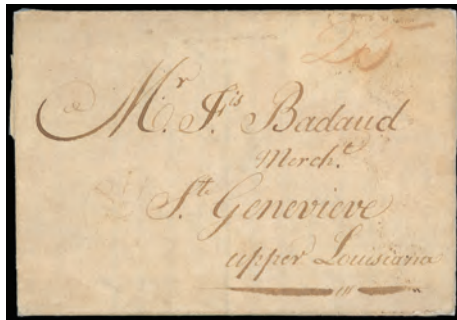 25
Mr. Fis Badaud
Mercht.
Ste Genevieve
upper Louisiana